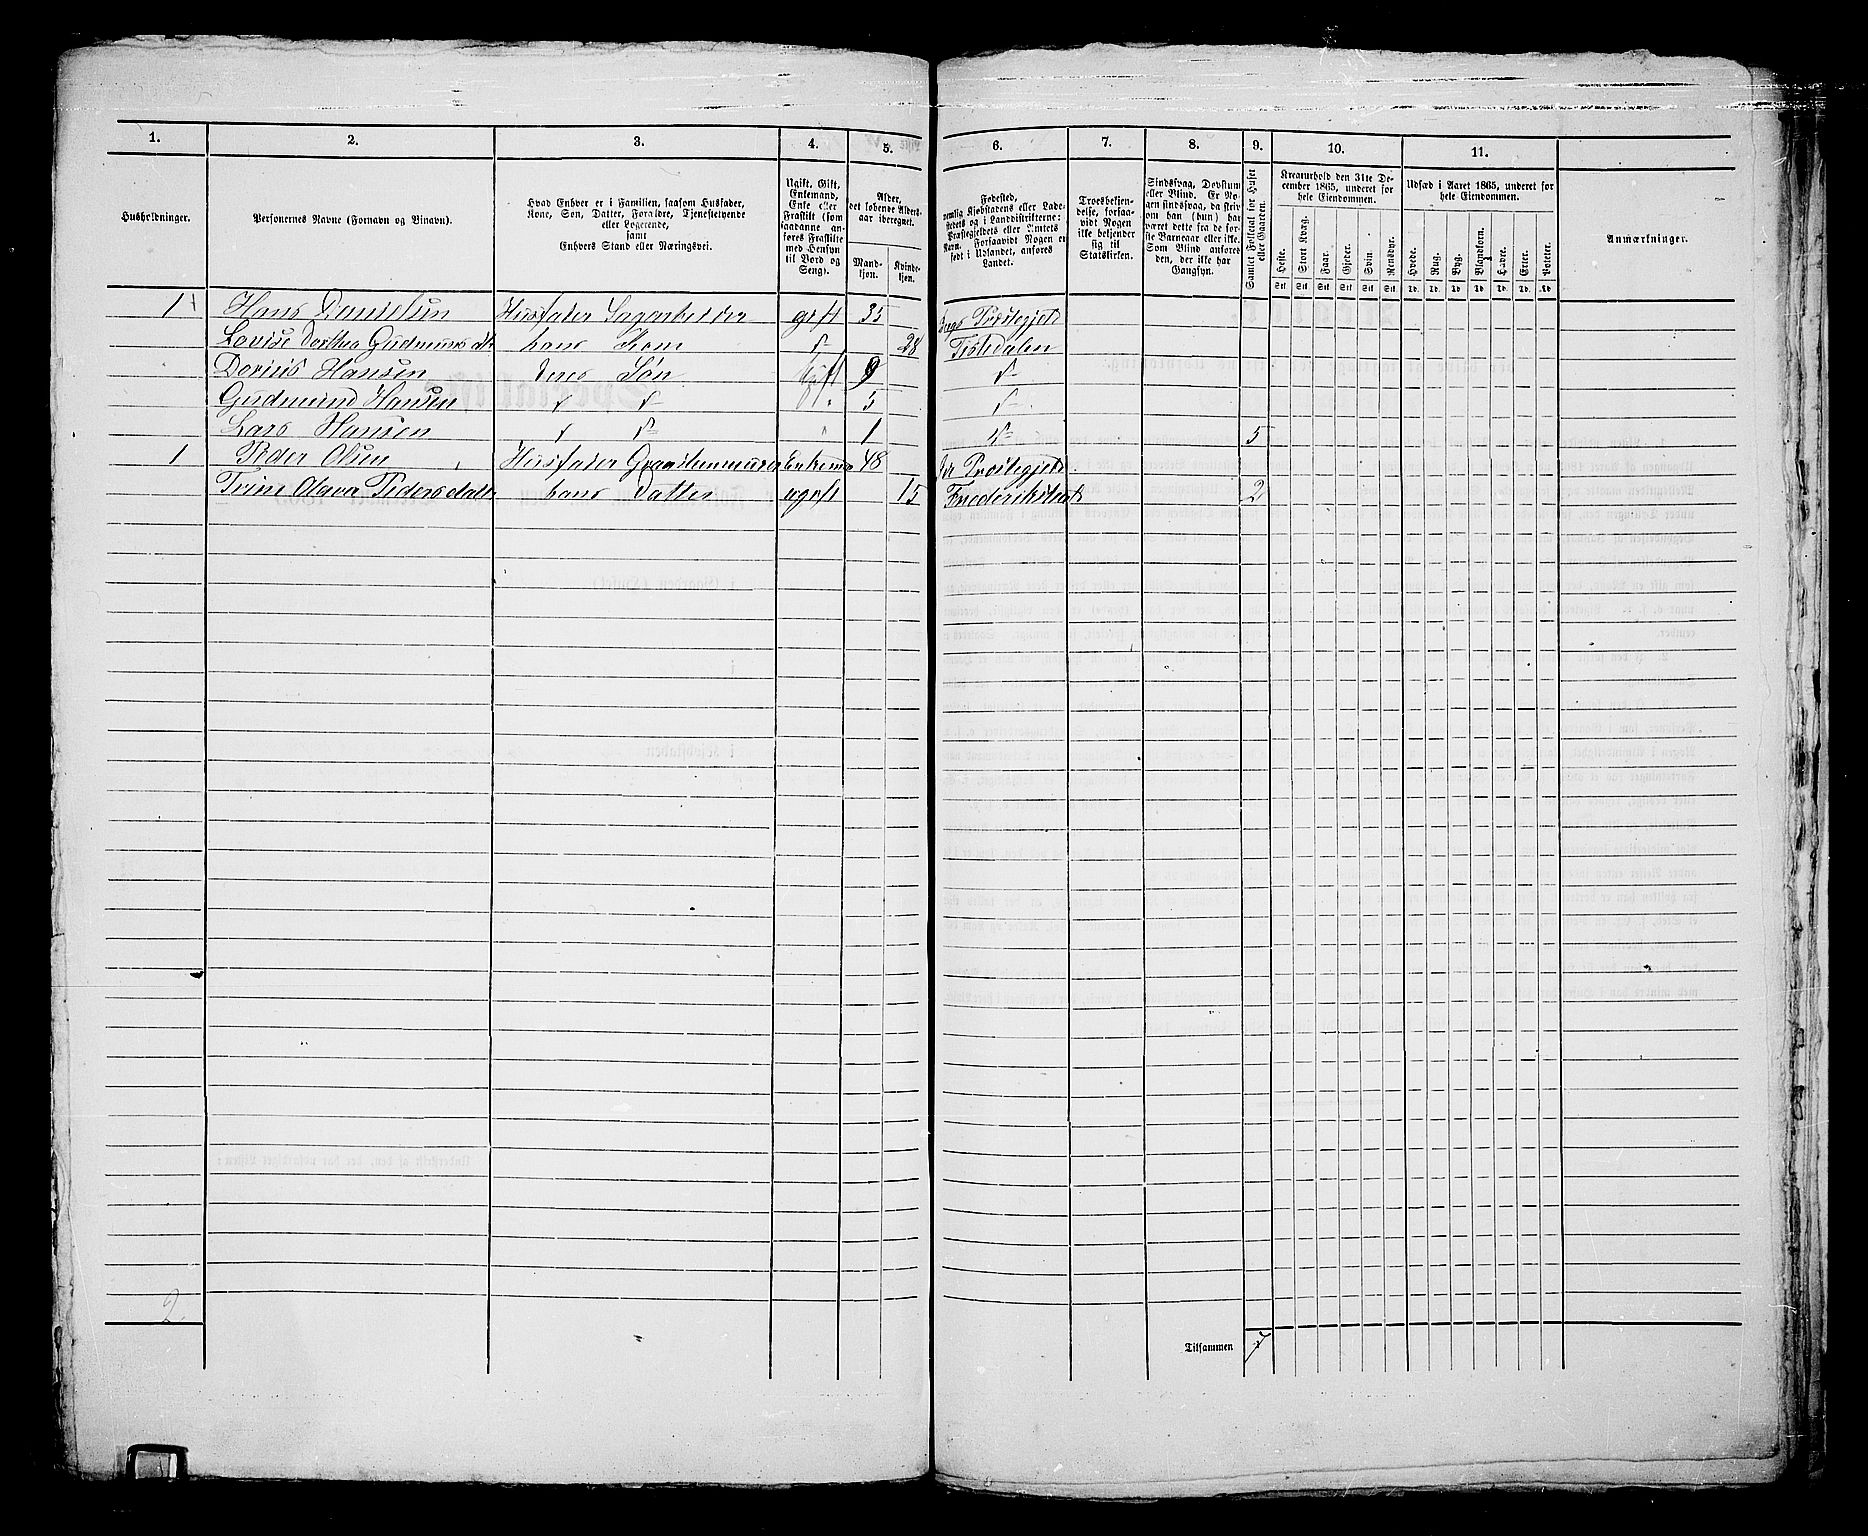 1. 2. 3. 4. 5. 6. 7. 8. 9. 10. 11.
Husholdninger.
Personernes Navne (Fornavn og Binavn).
Hvad Enhver er i Familien, saasom Husfader,
Kone, Søn, Datter, Forældre, Tjenestetyende
eller Logerende,
samt
Enhvers Stand eller Næringsvei.
Ugift, Gift,
Enkemand,
Enke eller
Fraskilt (som
saadanne an-
føres Fraskilte
med Hensyn
til Bord og
Seng).
Alder,
det løbende Alders-
aar iberegnet.
Mand-
kjøn.
Kvinde-
kjøn.
Fødested,
nemlig Kjøbstadens eller Lade-
stedets og i Landdistrikterne:
Præstegjeldets eller Amtets
Navn. Forsaavidt Nogen er
født i Udlandet, anføres
Landet.
Troesbekjen-
delse, forsaa-
vidt Nogen
ikke bekjender
sig til
Statskirken.
Sindssvag, Døvstum
eller Blind. Er No-
gen sindssvag, da skriv
om han (hun) har
været dette fra de før-
ste Barneaar eller ikke.
Som Blind anføres
den, der ikke har
Gangsyn.
Samlet Folketal for Huset
eller Gaarden.
Kreaturhold den 31te De-
cember 1865, underet for
hele Eiendommen.
Heste. Stort Kvæg. Faar. Gjeder. Svin. Rensdyr.
Stk. Stk. Stk. Stk. Stk. Stk.
Udsæd i Aaret 1865, underet for
hele Eiendommen.
Hvede. Rug. Byg. Blandkorn. Havre. Erter. Poteter.
Td. Td. Td. Td. Td. Td. Td.
Anmærkninger.
1 Hans Danielsen Husfader Sagarbeider gift 35 Bergs Præstegjeld
Lovise Dorthea Gudmunds dtr hans Kone 28 Tistedalen
Dorius Hansen deres Søn ugift 9
Gudmund Hansen 5
Lars Hansen 1 5
1 Peder Olsen Husfader Graastensmurer Enkema 48 Præstegjeld
Trine Olava Pedersdatter hans Datter ugift 15 Frederikstad 2
2
Tilsammen 7